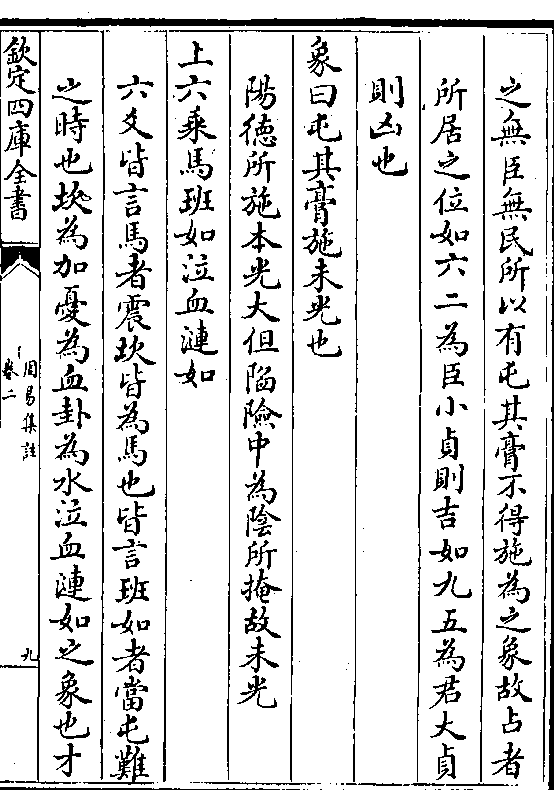 之無臣無民所以有屯其膏不得施為之象故占者
所居之位如六二為臣小貞則吉如九五為君大貞
則凶也
象曰屯其膏施未光也
陽德所施本光大但陷險中為陰所掩故未光
上六乘馬班如泣血漣如
六爻皆言馬者震坎皆為馬也皆言班如者當屯難
之時也坎為加憂為血卦為水泣血漣如之象也才
欽定四庫全書
周易集註
卷二
九